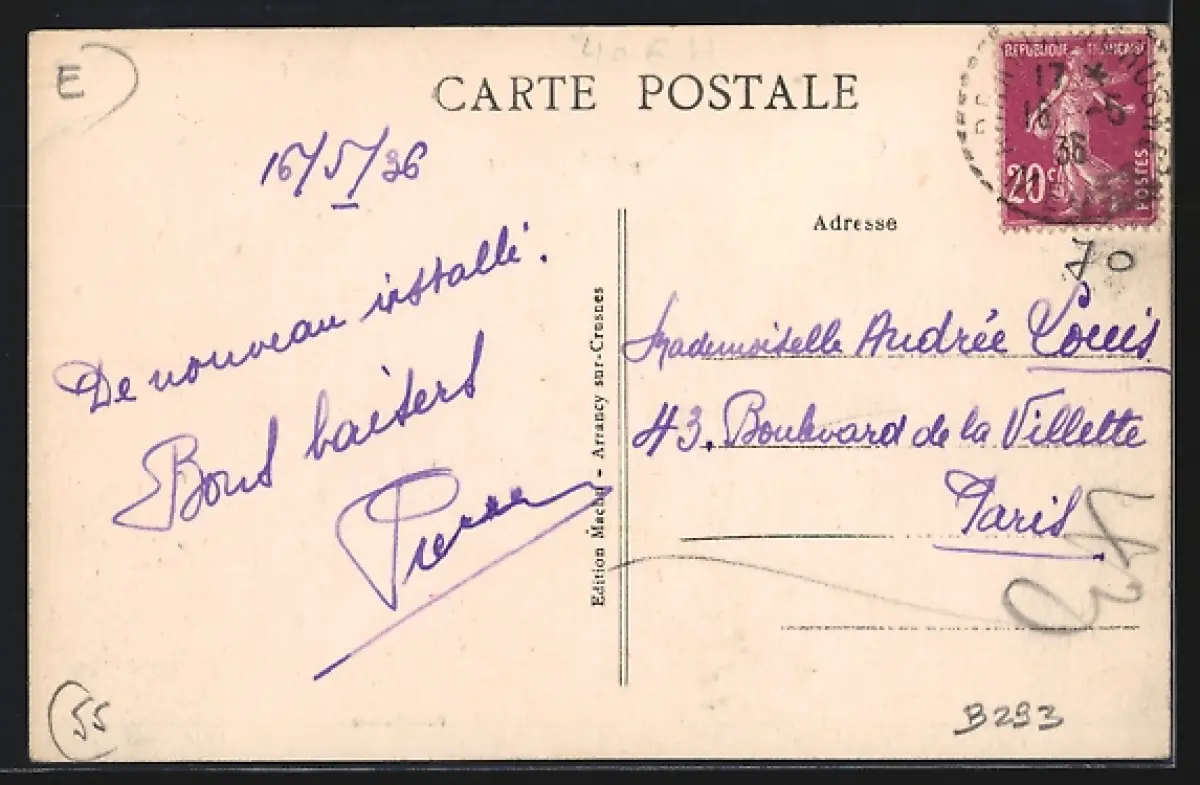 E
CARTE POSTALE
16/5/36
De nouveau installé.
Bons baisers
Pierre
Edition Machu - Arrancy sur-Crusnes
REPUBLIQUE FRANÇAISE
20 c.
POSTES
17 *
18 -5
36
Adresse
70
Mademoiselle Andrée Louis
43. Boulevard de la Villette
Paris
55
B293